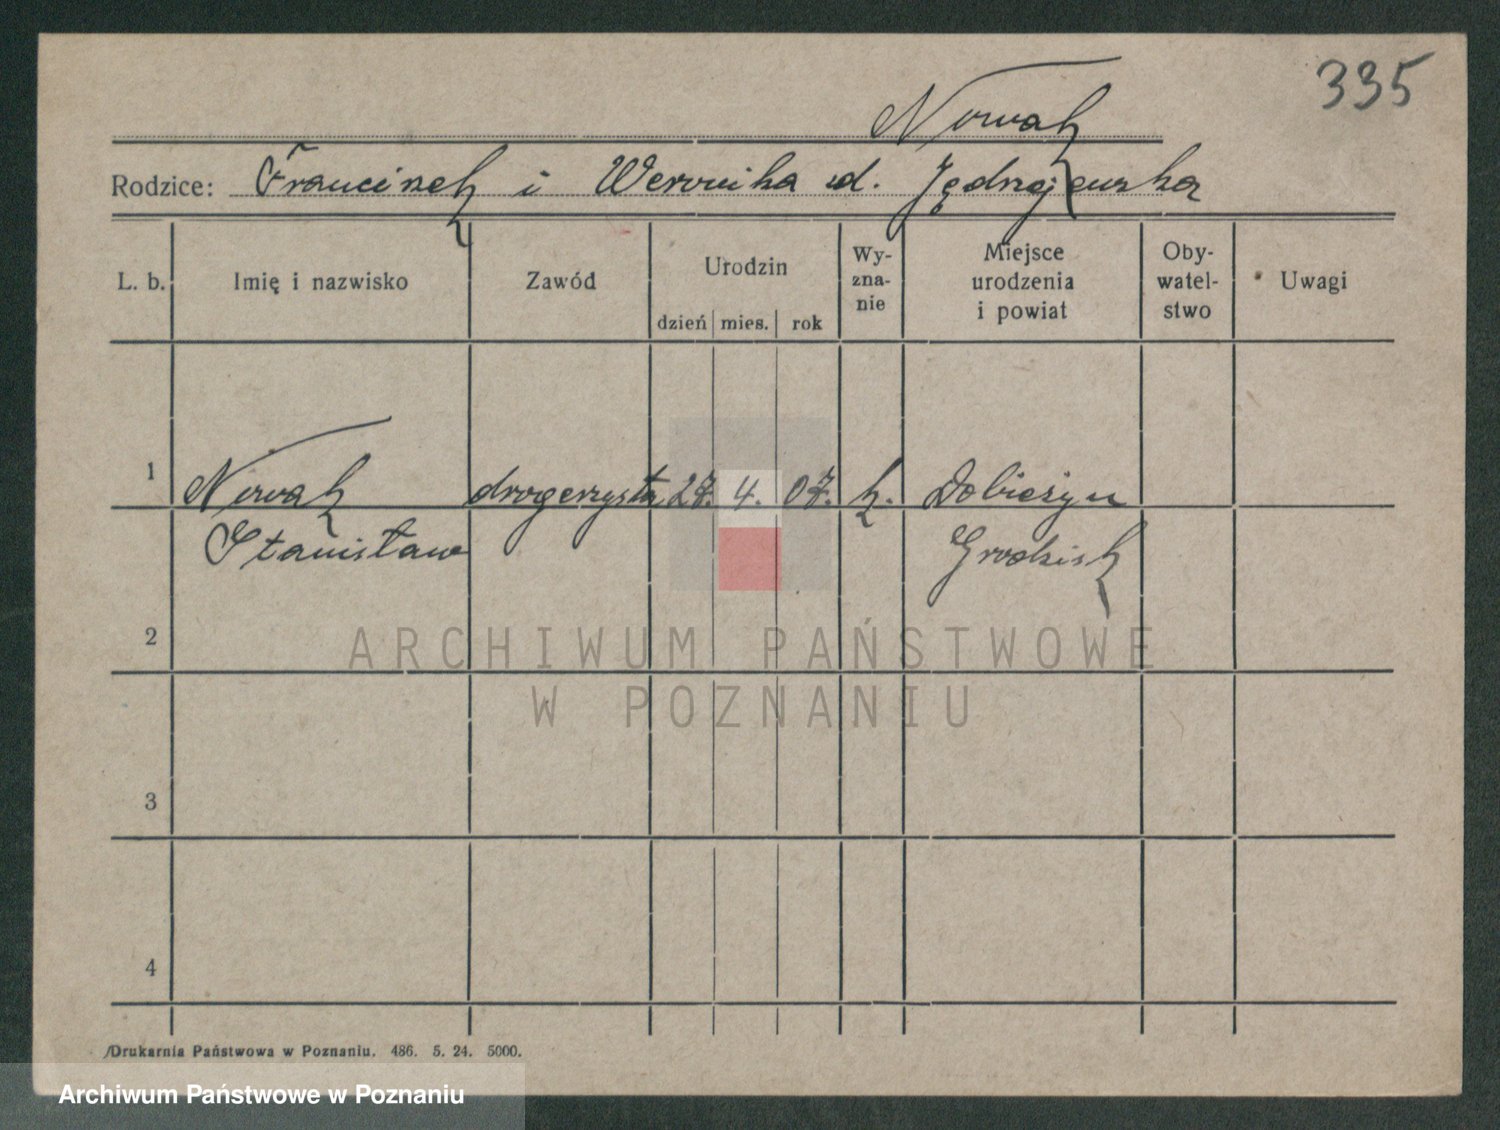 335
Nowak
Rodzice: Franciszek i Weronika d. Jędrzejewska
L. b. Imię i nazwisko Zawód Urodzin dzień mies. rok Wy-zna-nie Miejsce urodzenia i powiat Oby-watel-stwo Uwagi
1 Nowak drogerzysta 27. 4. 07. k. Dobieżyn
Stanisław Grodzisk
2
ARCHIWUM PAŃSTWOWE
W POZNANIU
3
4
Drukarnia Państwowa w Poznaniu. 486. 5. 24. 5000.
Archiwum Państwowe w Poznaniu